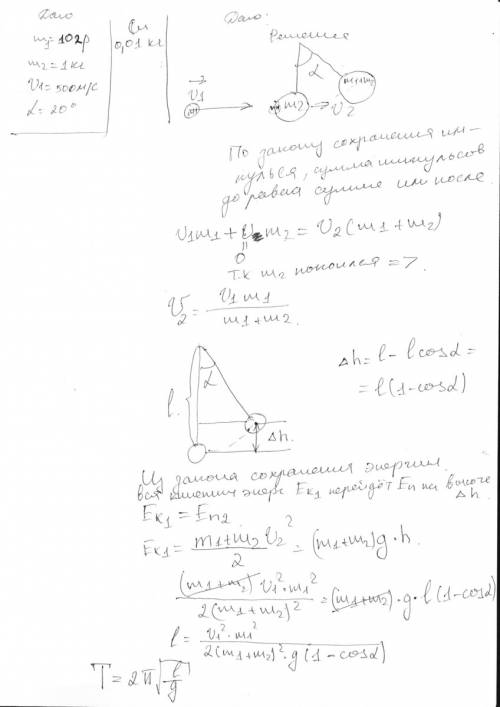 Дано
Си
Дано:
m1=10гр
0,01 кг
m2=1кг
V1=500м/с
α=20°
Решение
α
V1
m1
m2
V2
m1+m2
По закону сохранения им-
пульса, сумма импульсов
до равна сумме имп после.
V1m1+V m2=V2(m1+m2)
0
Т.к m2 покоился =>
V2 = V1 m1 / m1+m2
l.
α
Δh.
Δh = l - l cosα =
= l(1-cosα)
Из закона сохранения энергии
вся кинетич энерг Ек1 перейдёт Еп на высоте
Δh.
Ек1 = Еп2
Ек1 = m1+m2 V2² / 2 = (m1+m2)g·h.
(m1+m2) V1²·m1² / 2(m1+m2)² = (m1+m2)·g·l(1-cosα)
l = V1²·m1² / 2(m1+m2)²·g(1-cosα)
T = 2π√l/g